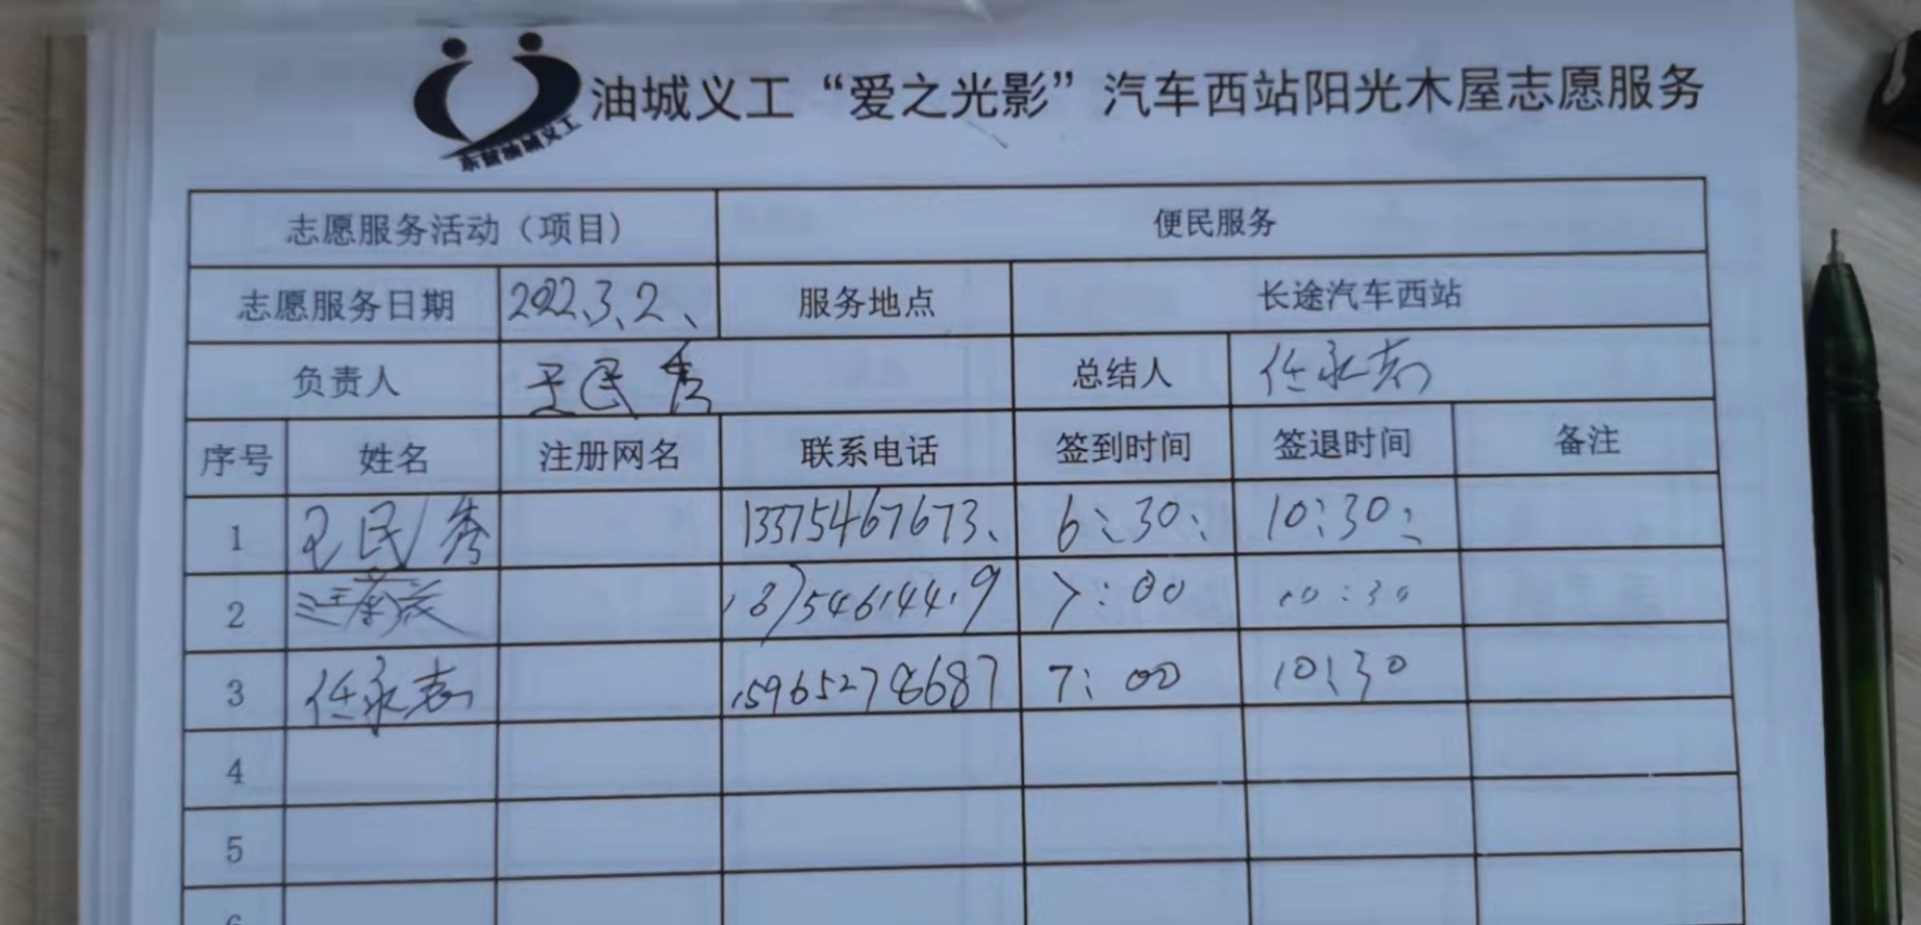 东营油城义工
油城义工“爱之光影”汽车西站阳光木屋志愿服务
志愿服务活动（项目） 便民服务
志愿服务日期 2022.3.2、 服务地点 长途汽车西站
负责人 王民秀 总结人 任永志
序号 姓名 注册网名 联系电话 签到时间 签退时间 备注
1 王民秀 13375467673、 6:30: 10:30:
2 18754614419 7:00 10:30
3 任永志 15965278687 7:00 10:30
4
5
6